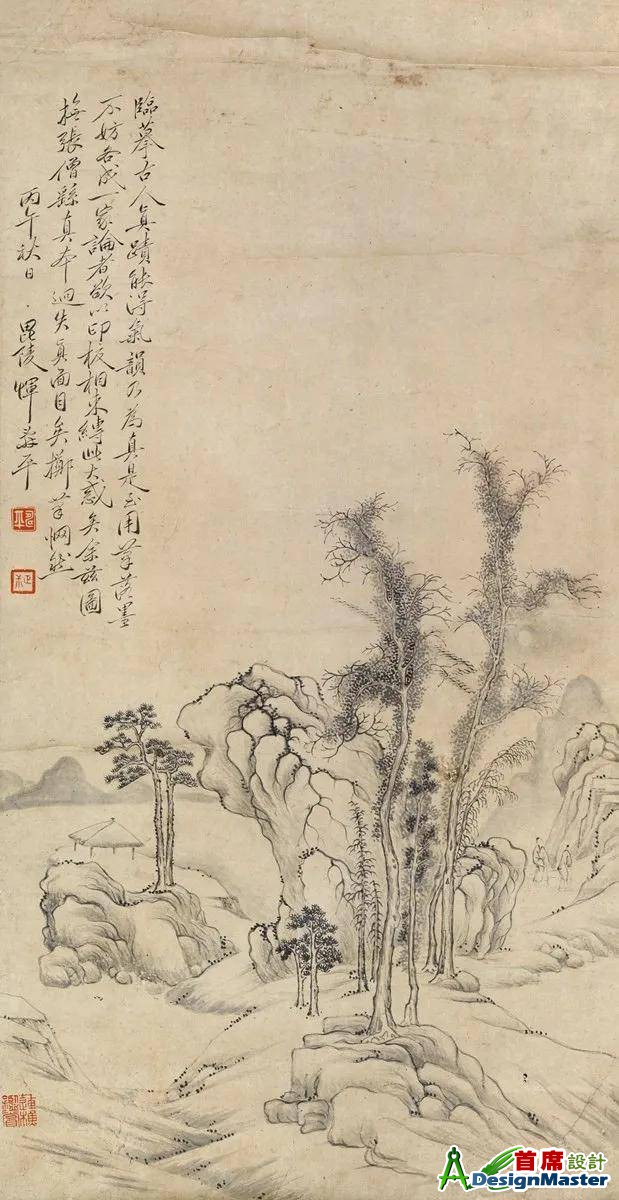 臨摹古人真蹟能浔氣韻乃為真是至用筆落墨
不妨各成一家論者欲以印板相束縛此大惑矣余兹圖
撫張僧繇真本迥失真面目矣擲筆惘然
丙午秋日 毘陵惲壽平
首席設計
ADesignMaster